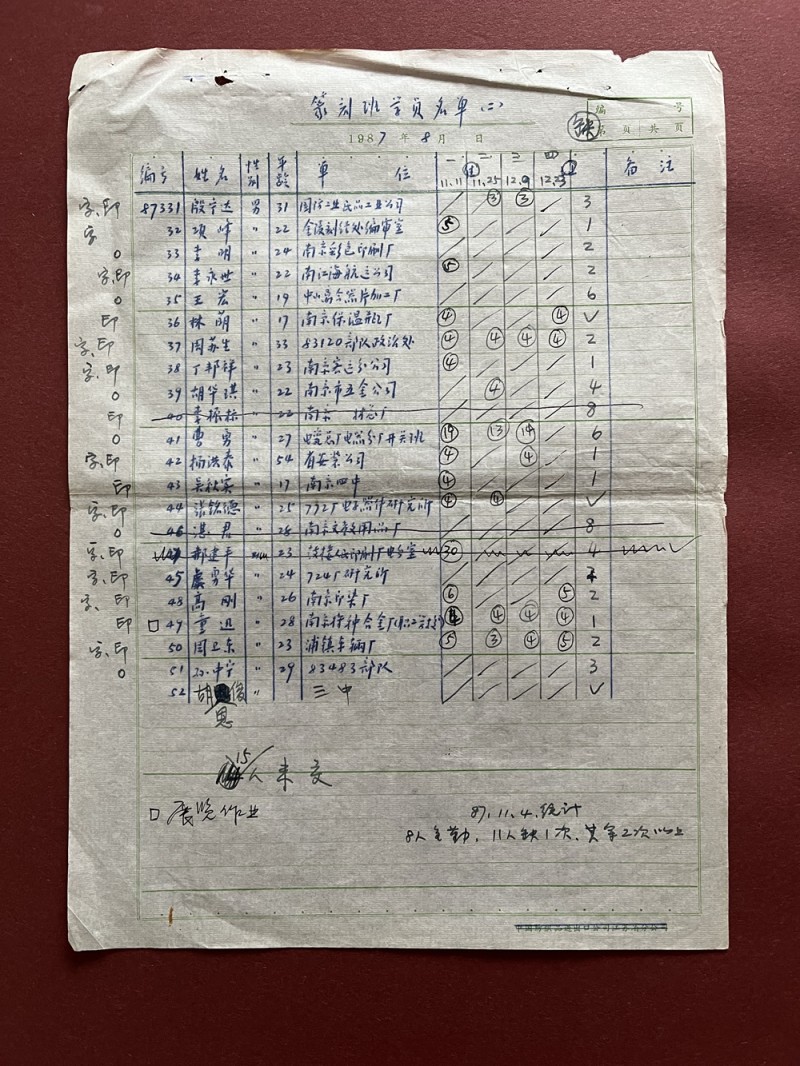 篆刻班学员名单(二)
编 号
缺 名 页 共 页
1987 年 8 月 日
编号 姓名 性别 年龄 单位 一 二 三 四 备注
11.11 11.25 12.9 12.23
字.印 87331 殷宁达 男 31 工业公司 / ③ ③ / 3
字 32 项峰 〃 22 金陵刻经处编审室 ⑤ / / / 1
0 33 李明 〃 24 南京彩色印刷厂 / / / / 2
字.印 34 李永世 〃 22 南江海航运公司 ⑤ / / / 2
0 35 王宏 〃 19 加工厂 / / / / 6
印 36 林萌 〃 17 南京保温瓶厂 ④ / / ④ V
字.印 37 周苏生 〃 33 83120部队政治处 ④ ④ ④ ④ 2
字.印 38 丁邦祥 〃 23 南京客运分公司 ④ / / / 1
0 39 胡华琪 〃 22 南京市五金公司 / ④ / / 4
印 40 李 〃 22 南京 厂 / / / / 8
0 41 曹勇 〃 27 电瓷总厂电器分厂开关班 ⑲ ⑬ ⑲ / 6
字.印 42 杨洪泰 〃 54 省公司 ④ / ④ / 1
印 43 吴秋实 〃 17 南京四中 ④ / / / 1
字.印 44 张铭德 〃 25 772厂电子器件研究所 ④ ④ / / V
0 46 湛君 〃 28 南京文教用品厂 / / / / 8
字.印 郝建平 23 印刷厂 室 ㉚ 4
字.印 45 虞勇华 〃 24 724厂研究所 / / / /
字.印 48 高刚 〃 26 南京印染厂 ⑥ / / ⑤ 2
印 □ 49 童迅 〃 28 南京特种合金厂 ④ ④ ④ 1
字.印 50 周卫东 〃 23 浦镇车辆厂 ⑤ ③ ④ ⑤ 2
0 51 中宁 〃 29 83483部队 / / / / 3
52 胡俊 〃 三中 / / / / V
恩
15人未交
□ 展览作业
87.11.4.统计
8人全勤, 11人缺1次, 其余2次以上